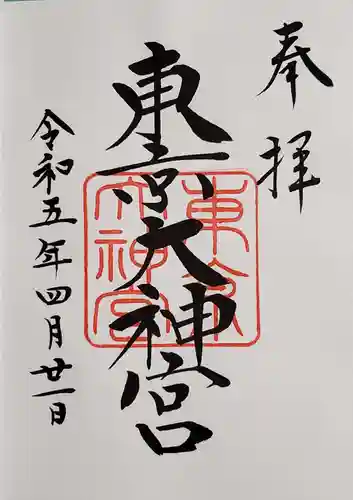 奉拝
東京大神宮
東京
大神宮
令和五年四月廿一日